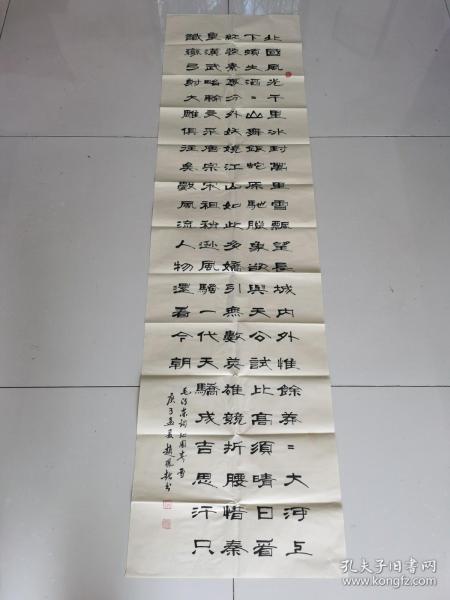 北國風光千里冰封萬里雪飄望長城内外惟餘莽=大河上
下頓失滔=山舞銀蛇原馳臘象欲與天公試比高須晴日看
紅裝素裹分外妖嬈江山如此多嬌引無數英雄競折腰惜秦
皇漢武略輸文采唐宗宋祖稍遜風騷一代天驕成吉思汗只
識彎弓射大雕俱往矣數風流人物還看今朝
毛泽东词沁园春雪
庚子孟夏趙书
孔夫子旧书网
www.kongfz.com